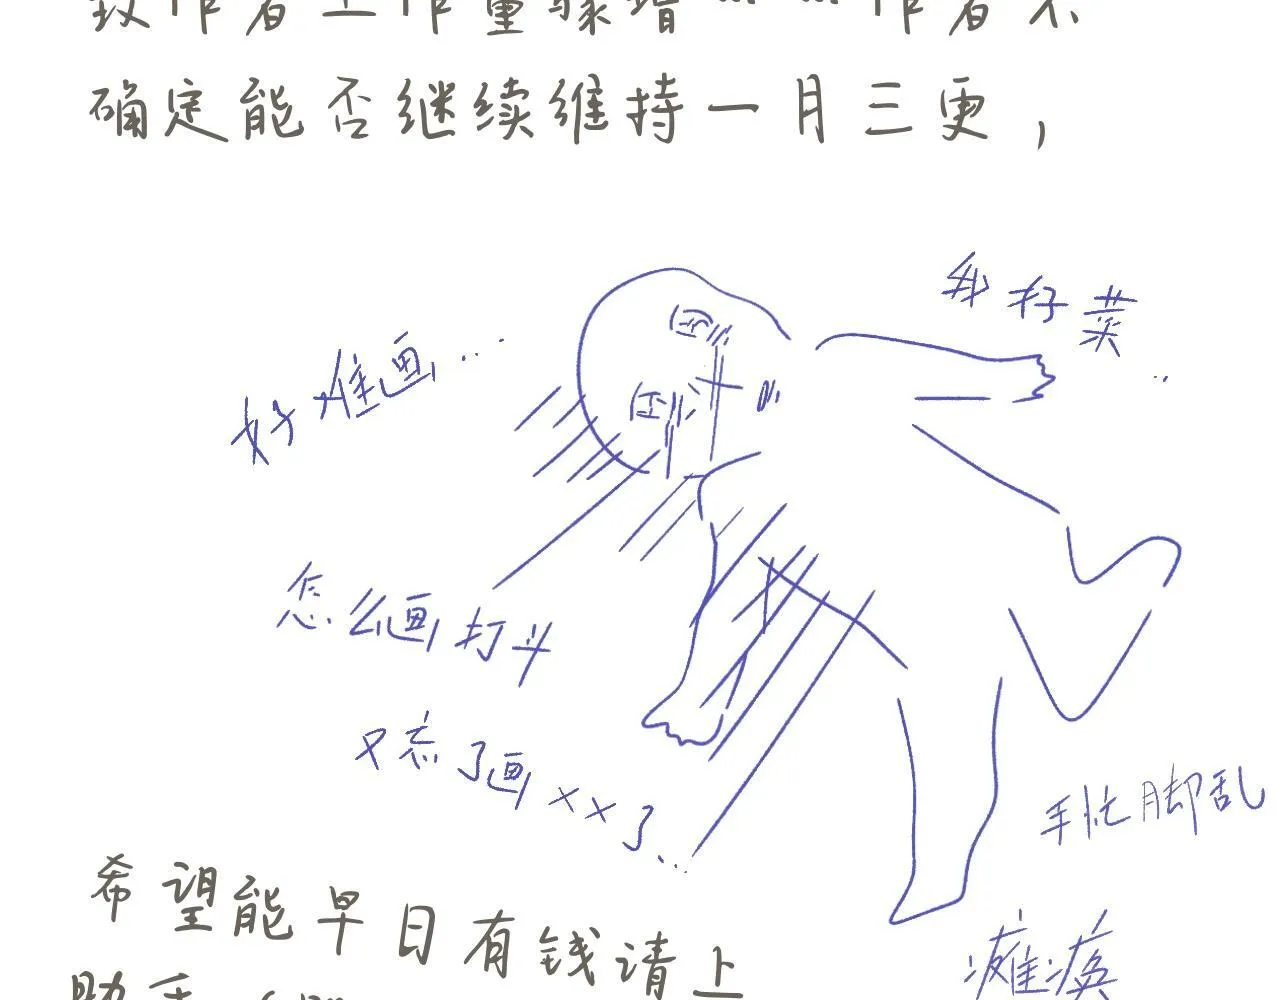 致作者工作量骤增……作者不
确定能否继续维持一月三更，
我好菜..
好难画...
怎么画打斗
又忘了画××了...
手忙脚乱
希望能早日有钱请上
瘫痪
助手